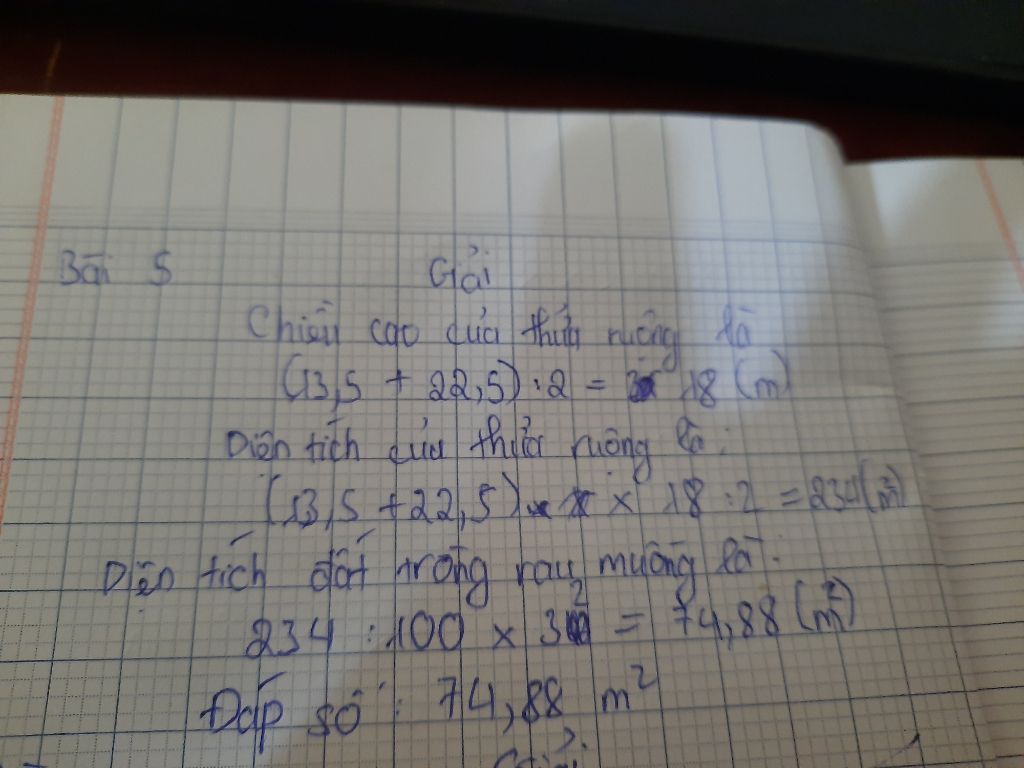 Bài 5 Giải
Chiều cao của thửa ruộng là
(13,5 + 22,5) : 2 = 18 (m)
Diện tích của thửa ruộng là:
(13,5 + 22,5) x 18 : 2 = 234 (m²)
Diện tích đất trồng rau muống là:
234 : 100 x 32 = 74,88 (m²)
Đáp số : 74,88 m²